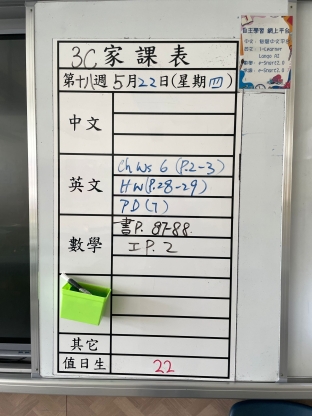 3C家課表
第十八週5月22日(星期四)
中文
英文
Ch Ws 6 (P.2-3)
HW(P.28-29)
PD(7)
數學
書P. 87-88
工P. 2
其它
值日生 22
自主學習 網上平台